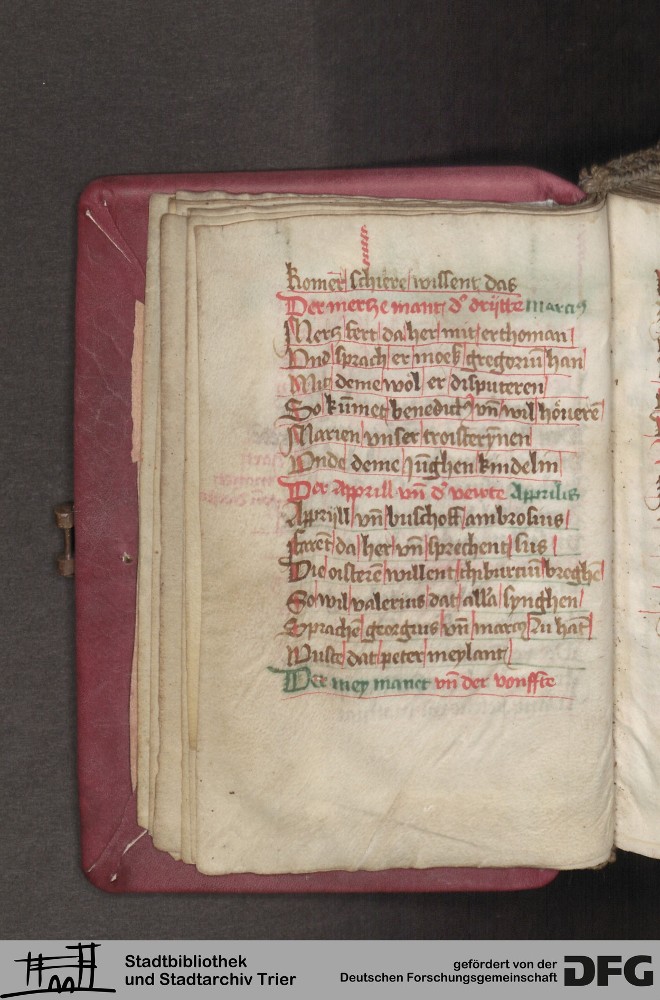 komer̄ schiere wissent das
Der mertze mant d' drijtte marcius
Mertz fert da her mit er thoman
Vnd sprach er moes gregoriū han
Mit deme wol er disputeren
So kūmet benedict' vn̄ wil hoͤuerē
Marien vnser troisterynnen
Vnde deme jūghen kindelin
Der Apprill vn̄ d' vewte Apprilis
Apprijll vn̄ buschoff ambrosius
farēt da her vn̄ sprechent sus
Die oisterē willent thiburciū breghē
So wil valerius dat all'a synghen
Sprache georgius vn̄ marcus zu hāt
Wuste dat peter meylant
Der mey manet vn̄ der vonffte
Stadtbibliothek
und Stadtarchiv Trier
gefördert von der
Deutschen Forschungsgemeinschaft
DFG